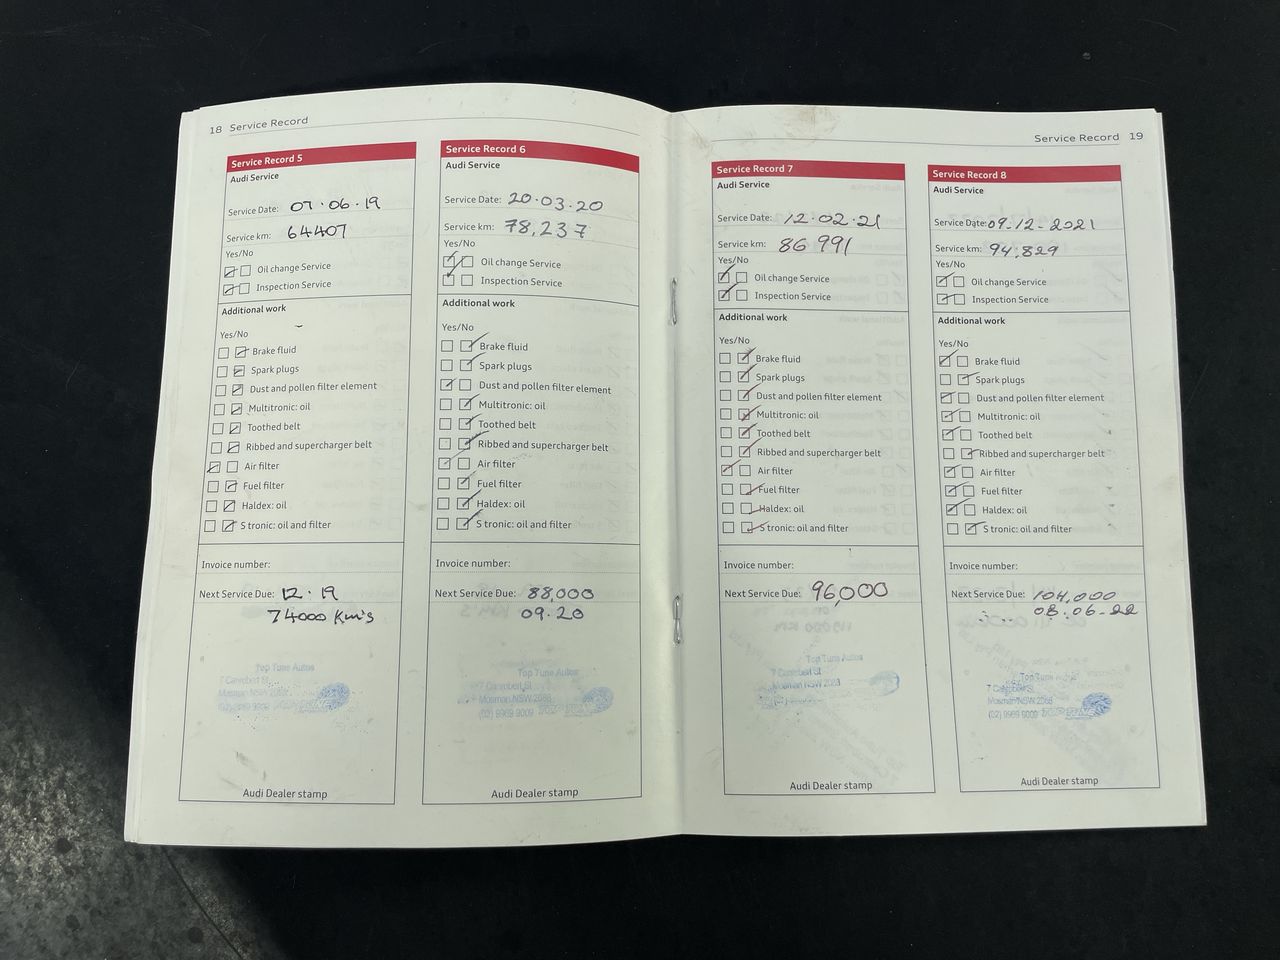 18 Service Record
Service Record 5
Audi Service
Service Date: 07·06·19
Service km: 64407
Yes/No
Oil change Service
Inspection Service
Additional work
Yes/No
Brake fluid
Spark plugs
Dust and pollen filter element
Multitronic: oil
Toothed belt
Ribbed and supercharger belt
Air filter
Fuel filter
Haldex: oil
S tronic: oil and filter
Invoice number:
Next Service Due: 12·19
74000 Km's
Top Tune Autos
7 Canrobert St
Mosman NSW 2088
(02) 9969 9009
Audi Dealer stamp
Service Record 6
Audi Service
Service Date: 20·03·20
Service km: 78,237
Yes/No
Oil change Service
Inspection Service
Additional work
Yes/No
Brake fluid
Spark plugs
Dust and pollen filter element
Multitronic: oil
Toothed belt
Ribbed and supercharger belt
Air filter
Fuel filter
Haldex: oil
S tronic: oil and filter
Invoice number:
Next Service Due: 88,000
09·20
Top Tune Autos
7 Canrobert St
Mosman NSW 2088
(02) 9969 9009
Audi Dealer stamp
Service Record 19
Service Record 7
Audi Service
Service Date: 12·02·21
Service km: 86 991
Yes/No
Oil change Service
Inspection Service
Additional work
Yes/No
Brake fluid
Spark plugs
Dust and pollen filter element
Multitronic: oil
Toothed belt
Ribbed and supercharger belt
Air filter
Fuel filter
Haldex: oil
S tronic: oil and filter
Invoice number:
Next Service Due: 96,000
Top Tune Autos
7 Canrobert St
Mosman NSW 2088
Audi Dealer stamp
Service Record 8
Audi Service
Service Date: 09-12-2021
Service km: 94,829
Yes/No
Oil change Service
Inspection Service
Additional work
Yes/No
Brake fluid
Spark plugs
Dust and pollen filter element
Multitronic: oil
Toothed belt
Ribbed and supercharger belt
Air filter
Fuel filter
Haldex: oil
S tronic: oil and filter
Invoice number:
Next Service Due: 104,000
08.06-22
Top Tune Autos
7 Canrobert St
Mosman NSW 2088
(02) 9969 9009
Audi Dealer stamp